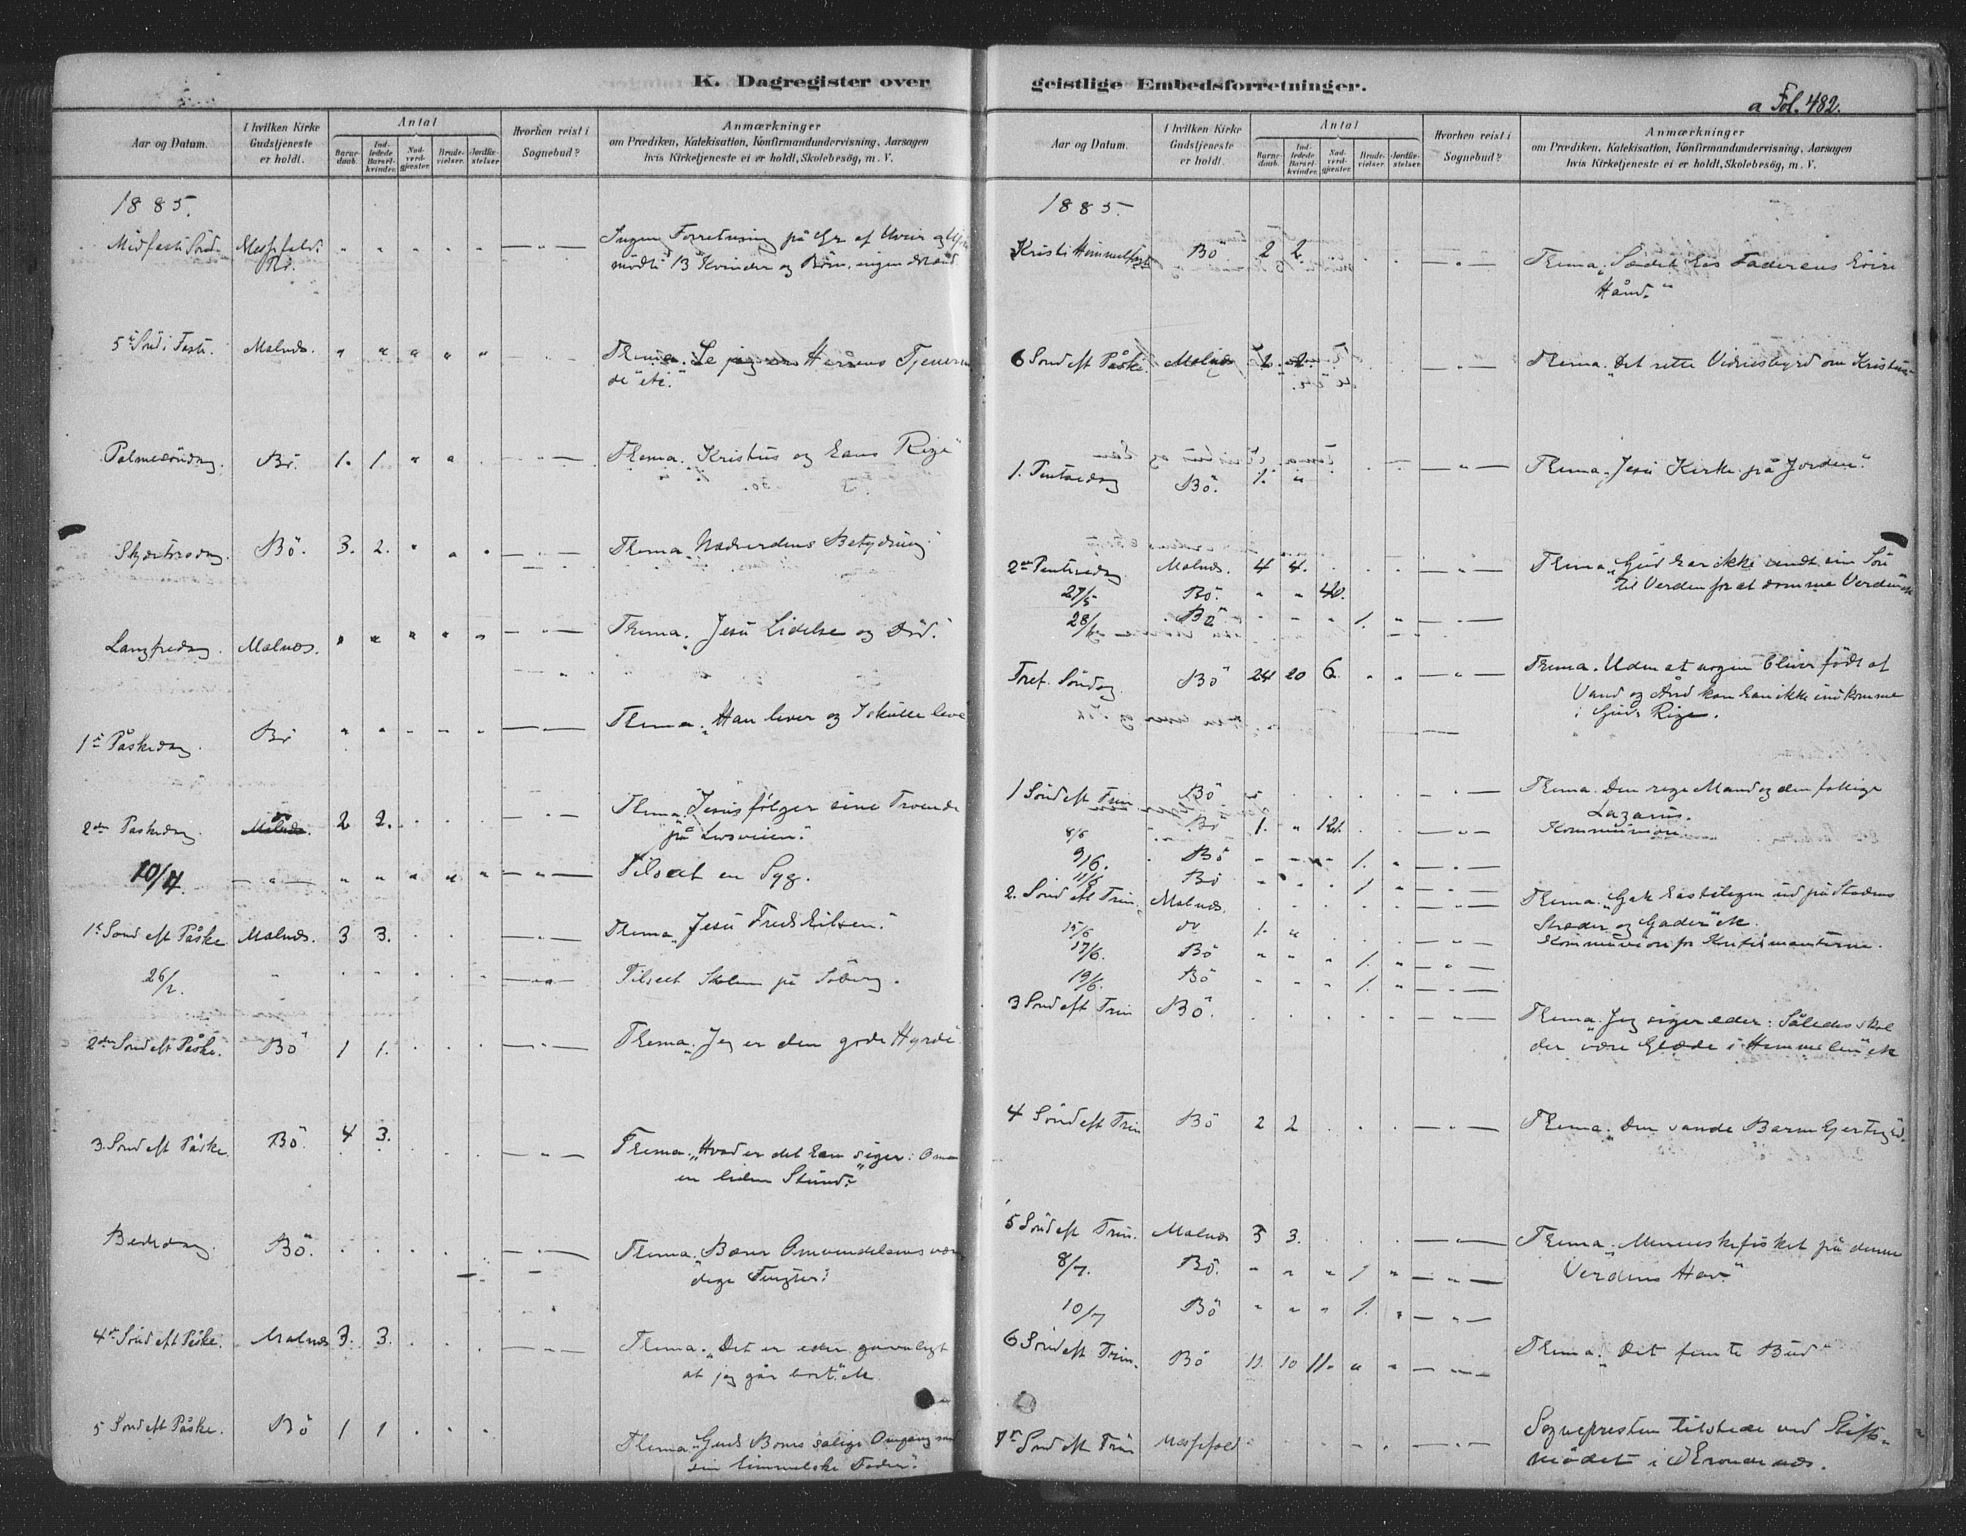 K. Dagregister over
Aar og Datum.
I hvilken Kirke Gudstjeneste er holdt.
Antal
Barnedaab.
Indledede Barselkvinder.
Nadverdgjester.
Brudevielser.
Jordfæstelser.
Hvorhen reist i Sognebud?
Anmærkninger
om Prædiken, Katekisation, Konfirmandundervisning, Aarsagen
hvis Kirketjeneste ei er holdt, Skolebesög, m. V.
1885.
Midfaste Sönd. Messefald. Bö. Ingen Forretning på Gr. af Uveir
mödt 13 Kvinder og Börn, ingen
5te Sönd i Faste. Malnes. Thema. Se Herrens Tjenerinde" etc."
Palmesöndag. Bö. 1. 1 Thema. „Kristus og hans Rige"
Skjærtorsdag. Bö. 3. 2. Thema „Nadverdens Betydning"
Langfredag. Malnæs. Thema. „Jesu Lidelse og Död."
1ste Påskedag. Bö Thema „Han lever og I skulle leve
2den Paskedag. Malnæs. Bö 2 2. Thema „Jesus fölger sine Troende
på Livsveien."
10/4. Tilseet en Syg.
1ste Sönd eft Påske Malnæs. 3 3. Thema „Jesu Fredshilsen."
26/2. Tilseet Skolen på
2den Sönd eft Påske. Bö 1 1. Thema „Jeg er den gode Hyrde"
3. Sönd eft Påske. Bö. 4 3. Thema. „Hvad er det han siger: Om
en liden Stund?"
Bededag Bö. Thema. „Bærer Omvendelsens værdige Frugter!
4de Sönd eft Påske. Malnæs 3. 3. Thema. „Det er eder gavnligt
at jeg går bort." etc.
5 Sönd eft Påske. Bö 1 1 Thema „Guds Börns salige Omgang med
sin himmelske Fader."
geistlige Embedsforretninger.
a Fol. 482.
Aar og Datum.
I hvilken Kirke Gudstjeneste er holdt.
Antal
Barnedaab.
Indledede Barselkvinder.
Nadverdgjester.
Brudevielser.
Jordfæstelser.
Hvorhen reist i Sognebud?
Anmærkninger
om Prædiken, Katekisation, Konfirmandundervisning, Aarsagen
hvis Kirketjeneste ei er holdt, Skolebesög, m. V.
1885.
Kristi Himmelfart Bö 2 2. Thema „Sædet hos Faderens höire
Hånd."
6 Sönd eft Påske. Malnæs 2 2. Thema. „Det rette Vidnesbyrd om Kristus
1. Pintsedag Bö. 1. Thema „Jesu Kirke på Jorden".
2den Pintsedag Malnæs. 4 4. Thema „Gud har ikke sendt sin Sön
til Verden for at dömme Verden" etc
27/5 Bö. 40.
28/5 Bö 1.
Tref. Söndag. Bö 24 20 6. Thema. Uden at nogen bliver födt af
Vand og Ånd kan han ikke indkomme
i Guds Rige.
1 Sönd eft Trin Bö Thema. Den rige Mand og den fattige
Lazarus.
8/6 Bö 1. 121. Kommunion.
9/6. Bö 1.
11/6 Bö 1.
2. Sönd eft Trin. Malnæs. Thema. „Gak hasteligen ud på Stadens
Stræder og Gader" etc.
15/6 do 1. Kommunion for Konfirmanterne.
17/6. Bö 1.
19/6. Bö 1.
3 Sönd eft Trin Bö. Thema. „Jeg siger eder: Således skal
der være Glæde i Himmelen" etc
4 Sönd eft Trin Bö 2 2 Thema „Den sande Barmhjertighed.
5 Sönd eft Trin. Malnæs 3 3. Thema „Menneskefisket på denne
Verdens Hav."
8/7. Bö. 1
10/7 Bö 1.
6 Sönd eft Trin. Bö 11. 10 11. Thema. „Det femte Bud"
7de Sönd eft Trin Messefald Sognepresten tilstede ved Stiftsmödet i Tronenæs.